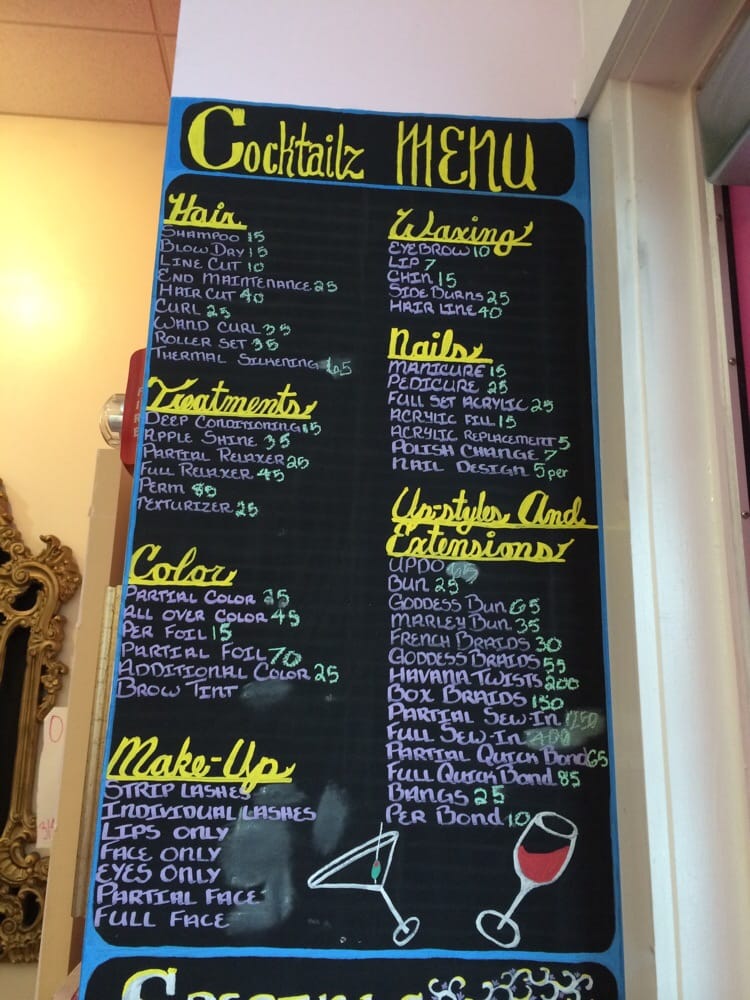 Cocktailz MENU
Hair
SHAMPOO 15
BLOW DAY 15
LINE CUT 10
END MAINTENANCE 25
HAIR CUT 40
CURL 25
WAND CURL 35
ROLLER SET 35
THERMAL SILKENING 65
Treatments
DEEP CONDITIONING 15
APPLE SHINE 35
PARTIAL RELAXER 25
FULL RELAXER 45
PERM 85
TEXTURIZER 25
Color
PARTIAL COLOR 35
ALL OVER COLOR 45
PER FOIL 15
PARTIAL FOIL 70
ADDITIONAL COLOR 25
BROW TINT
Make-Up
STRIP LASHES
INDIVIDUAL LASHES
LIPS ONLY
FACE ONLY
EYES ONLY
PARTIAL FACE
FULL FACE
Waxing
EYEBROW 10
LIP 7
CHIN 15
SIDE BURNS 25
HAIR LINE 40
Nails
MANICURE 15
PEDICURE 25
FULL SET ACRYLIC 25
ACRYLIC FILL 15
ACRYLIC REPLACEMENT 5
POLISH CHANGE 7
NAIL DESIGN 5 per
Up-styles And
Extensions
UPDO 65
BUN 25
GODDESS BUN 65
MARLEY BUN 35
FRENCH BRAIDS 30
GODDESS BRAIDS 55
HAVANA TWISTS 200
BOX BRAIDS 150
PARTIAL SEW-IN 250
FULL SEW-IN 400
PARTIAL QUICK BOND 65
FULL QUICK BOND 85
BANGS 25
PER BOND 10